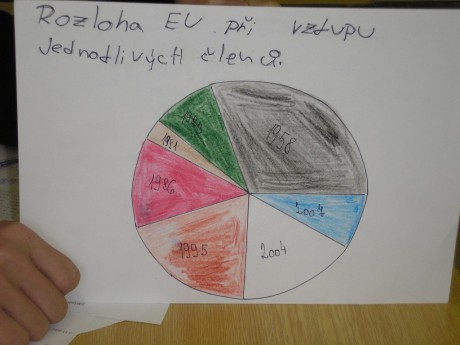 Rozloha EU při vzdupu
jednotlivých členů.
1958
1981
1986
1995
2004
2007